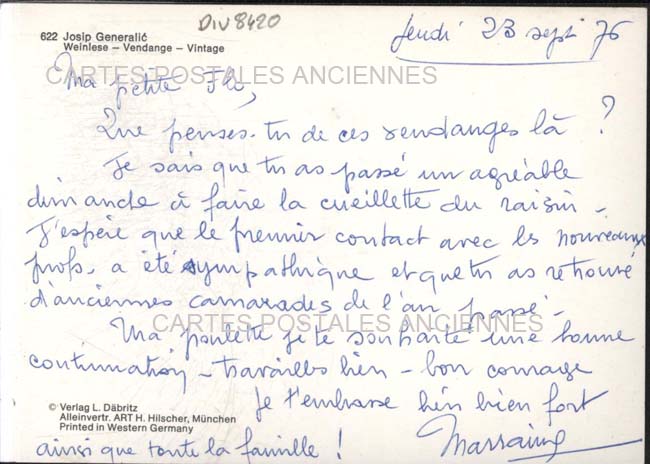 DIV8420
622 Josip Generalić
Weinlese – Vendange – Vintage
Jeudi 23 sept 76
CARTES POSTALES ANCIENNES
Ma petite Flo,
Que penses-tu de ces vendanges là ?
Je sais que tu as passé un agréable
dimanche à faire la cueillette du raisin –
J'espère que le premier contact avec les nouveaux
profs. a été sympathique et que tu as retrouvé
d'anciennes camarades de l'an passé –
CARTES POSTALES ANCIENNES
Ma poulette je te souhaite une bonne
continuation – travailles bien – bon courage
© Verlag L. Däbritz
Alleinvertr. ART H. Hilscher, München
Printed in Western Germany
Je t'embrasse bien bien fort
ainsi que toute la famille !
Marraine